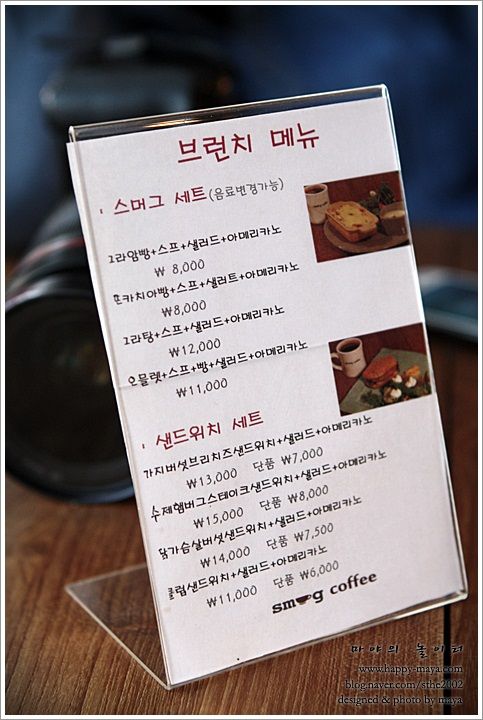 브런치 메뉴
스머그 세트(음료변경가능)
그라탐빵+스프+샐러드+아메리카노
₩ 8,000
포카치아빵+스프+샐러트+아메리카노
₩8,000
그라탕+스프+샐러드+아메리카노
₩12,000
오믈렛+스프+빵+샐러드+아메리카노
₩11,000
샌드위치 세트
가지버섯브리치즈샌드위치+샐러드+아메리카노
₩13,000 단품 ₩7,000
수제햄버그스테이크샌드위치+샐러드+아메리카노
₩15,000 단품 ₩8,000
닭가슴살버섯샌드위치+샐러드+아메리카노
₩14,000 단품 ₩7,500
클럽샌드위치+샐러드+아메리카노
₩11,000 단품 ₩6,000
smug coffee
마야의 놀이터
www.happy-maya.com
blog.naver.com/sthe2002
designed & photo by maya